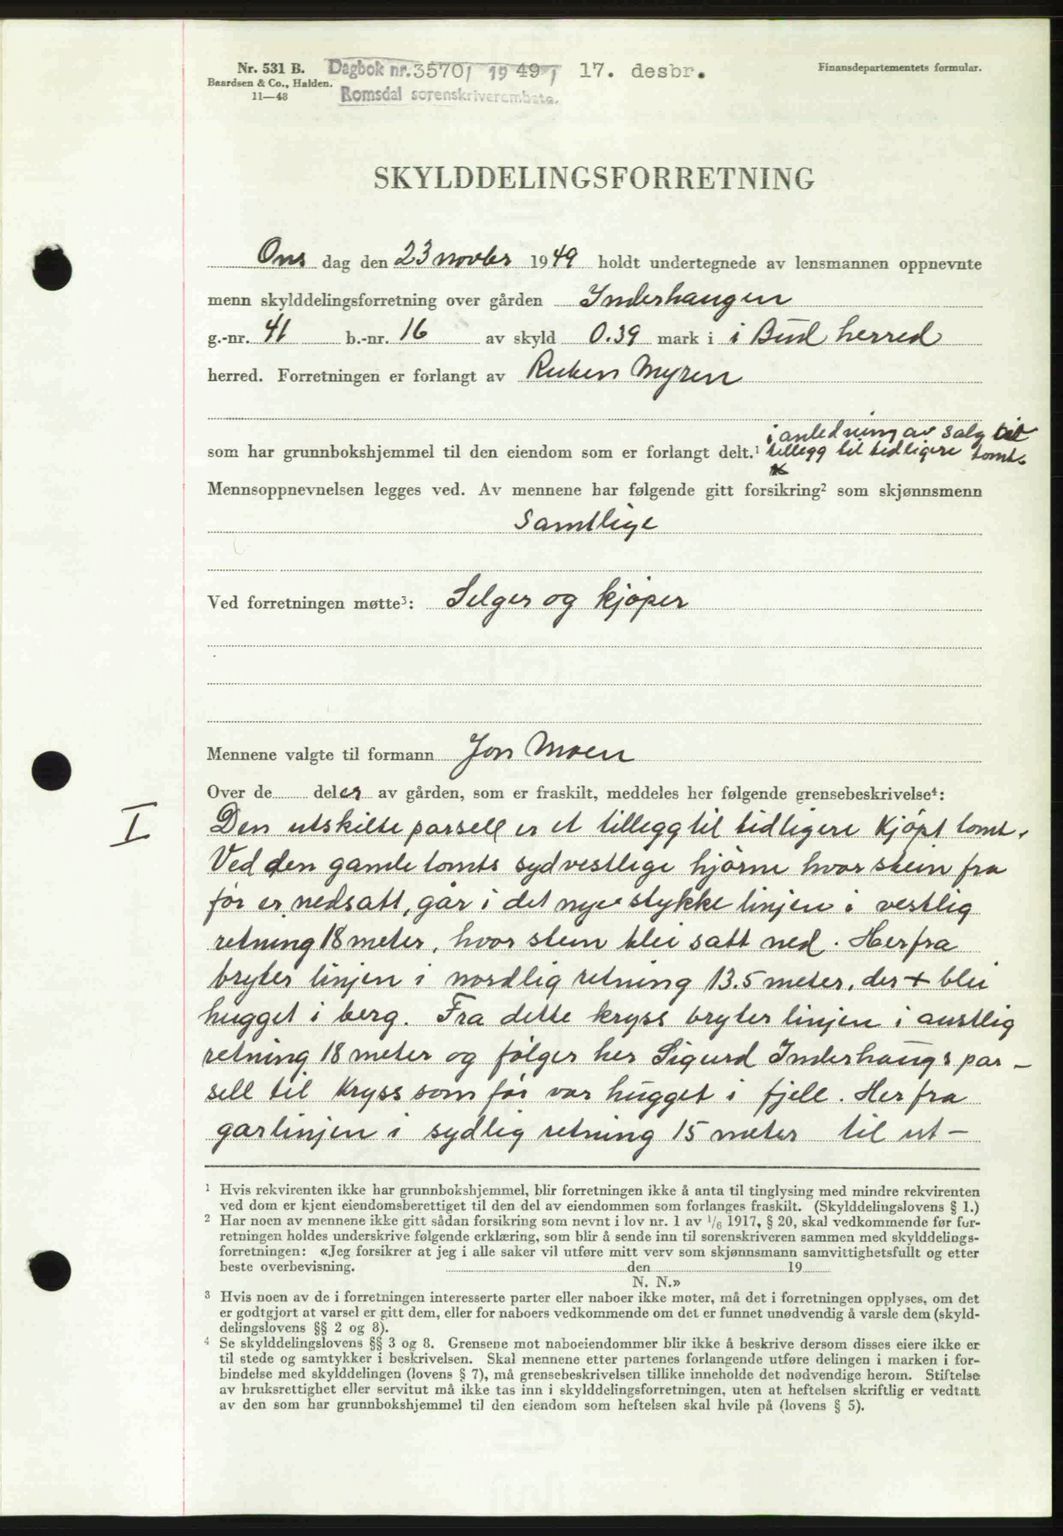 Nr. 531 B.
Baardsen & Co., Halden.
11—48
Dagbok nr. 3570/1949/ 17. desbr.
Romsdal sorenskriverembete.
Finansdepartementets formular.
SKYLDDELINGSFORRETNING
Ons dag den 23 novbr 1949 holdt undertegnede av lensmannen oppnevnte
menn skylddelingsforretning over gården Inderhaugen
g.-nr. 41 b.-nr. 16 av skyld 0.39 mark i i Bud herred
herred. Forretningen er forlangt av Ruben Myren
i anledning av salg til
som har grunnbokshjemmel til den eiendom som er forlangt delt.¹ tillegg til tidligere tomt.
Mennsoppnevnelsen legges ved. Av mennene har følgende gitt forsikring² som skjønnsmenn
Samtlige
Ved forretningen møtte³: Selger og kjøper
Mennene valgte til formann Jon Moen
Over de deler av gården, som er fraskilt, meddeles her følgende grensebeskrivelse⁴:
I Den utskilte parsell er et tillegg til tidligere kjøpt tomt.
Ved den gamle tomts sydvestlige hjørne hvor stein fra
før er nedsatt, går i det nye stykke linjen i vestlig
retning 18 meter, hvor stein blei satt ned. Herfra
bryter linjen i nordlig retning 13.5 meter, der + blei
hugget i berg. Fra dette kryss bryter linjen i austlig
retning 18 meter og følger her Sigurd Inderhaugs par-
sell til kryss som før var hugget i fjell. Herfra
går linjen i sydlig retning 15 meter til ut-
¹ Hvis rekvirenten ikke har grunnbokshjemmel, blir forretningen ikke å anta til tinglysing med mindre rekvirenten
ved dom er kjent eiendomsberettiget til den del av eiendommen som forlanges fraskilt. (Skylddelingslovens § 1.)
² Har noen av mennene ikke gitt sådan forsikring som nevnt i lov nr. 1 av 1/6 1917, § 20, skal vedkommende før for-
retningen holdes underskrive følgende erklæring, som blir å sende inn til sorenskriveren sammen med skylddelings-
forretningen: «Jeg forsikrer at jeg i alle saker vil utføre mitt verv som skjønnsmann samvittighetsfullt og etter
beste overbevisning. den 19
N. N.»
³ Hvis noen av de i forretningen interesserte parter eller naboer ikke møter, må det i forretningen opplyses, om det
er godtgjort at varsel er gitt dem, eller for naboers vedkommende om det er funnet unødvendig å varsle dem (skyld-
delingslovens §§ 2 og 8).
⁴ Se skylddelingslovens §§ 3 og 8. Grensene mot naboeiendommer blir ikke å beskrive dersom disses eiere ikke er
til stede og samtykker i beskrivelsen. Skal mennene etter partenes forlangende utføre delingen i marken i for-
bindelse med skylddelingen (lovens § 7), må grensebeskrivelsen tillike inneholde det nødvendige herom. Stiftelse
av bruksrettighet eller servitut må ikke tas inn i skylddelingsforretningen, uten at heftelsen skriftlig er vedtatt
av den som har grunnbokshjemmel til den eiendom som heftelsen skal hvile på (lovens § 5).